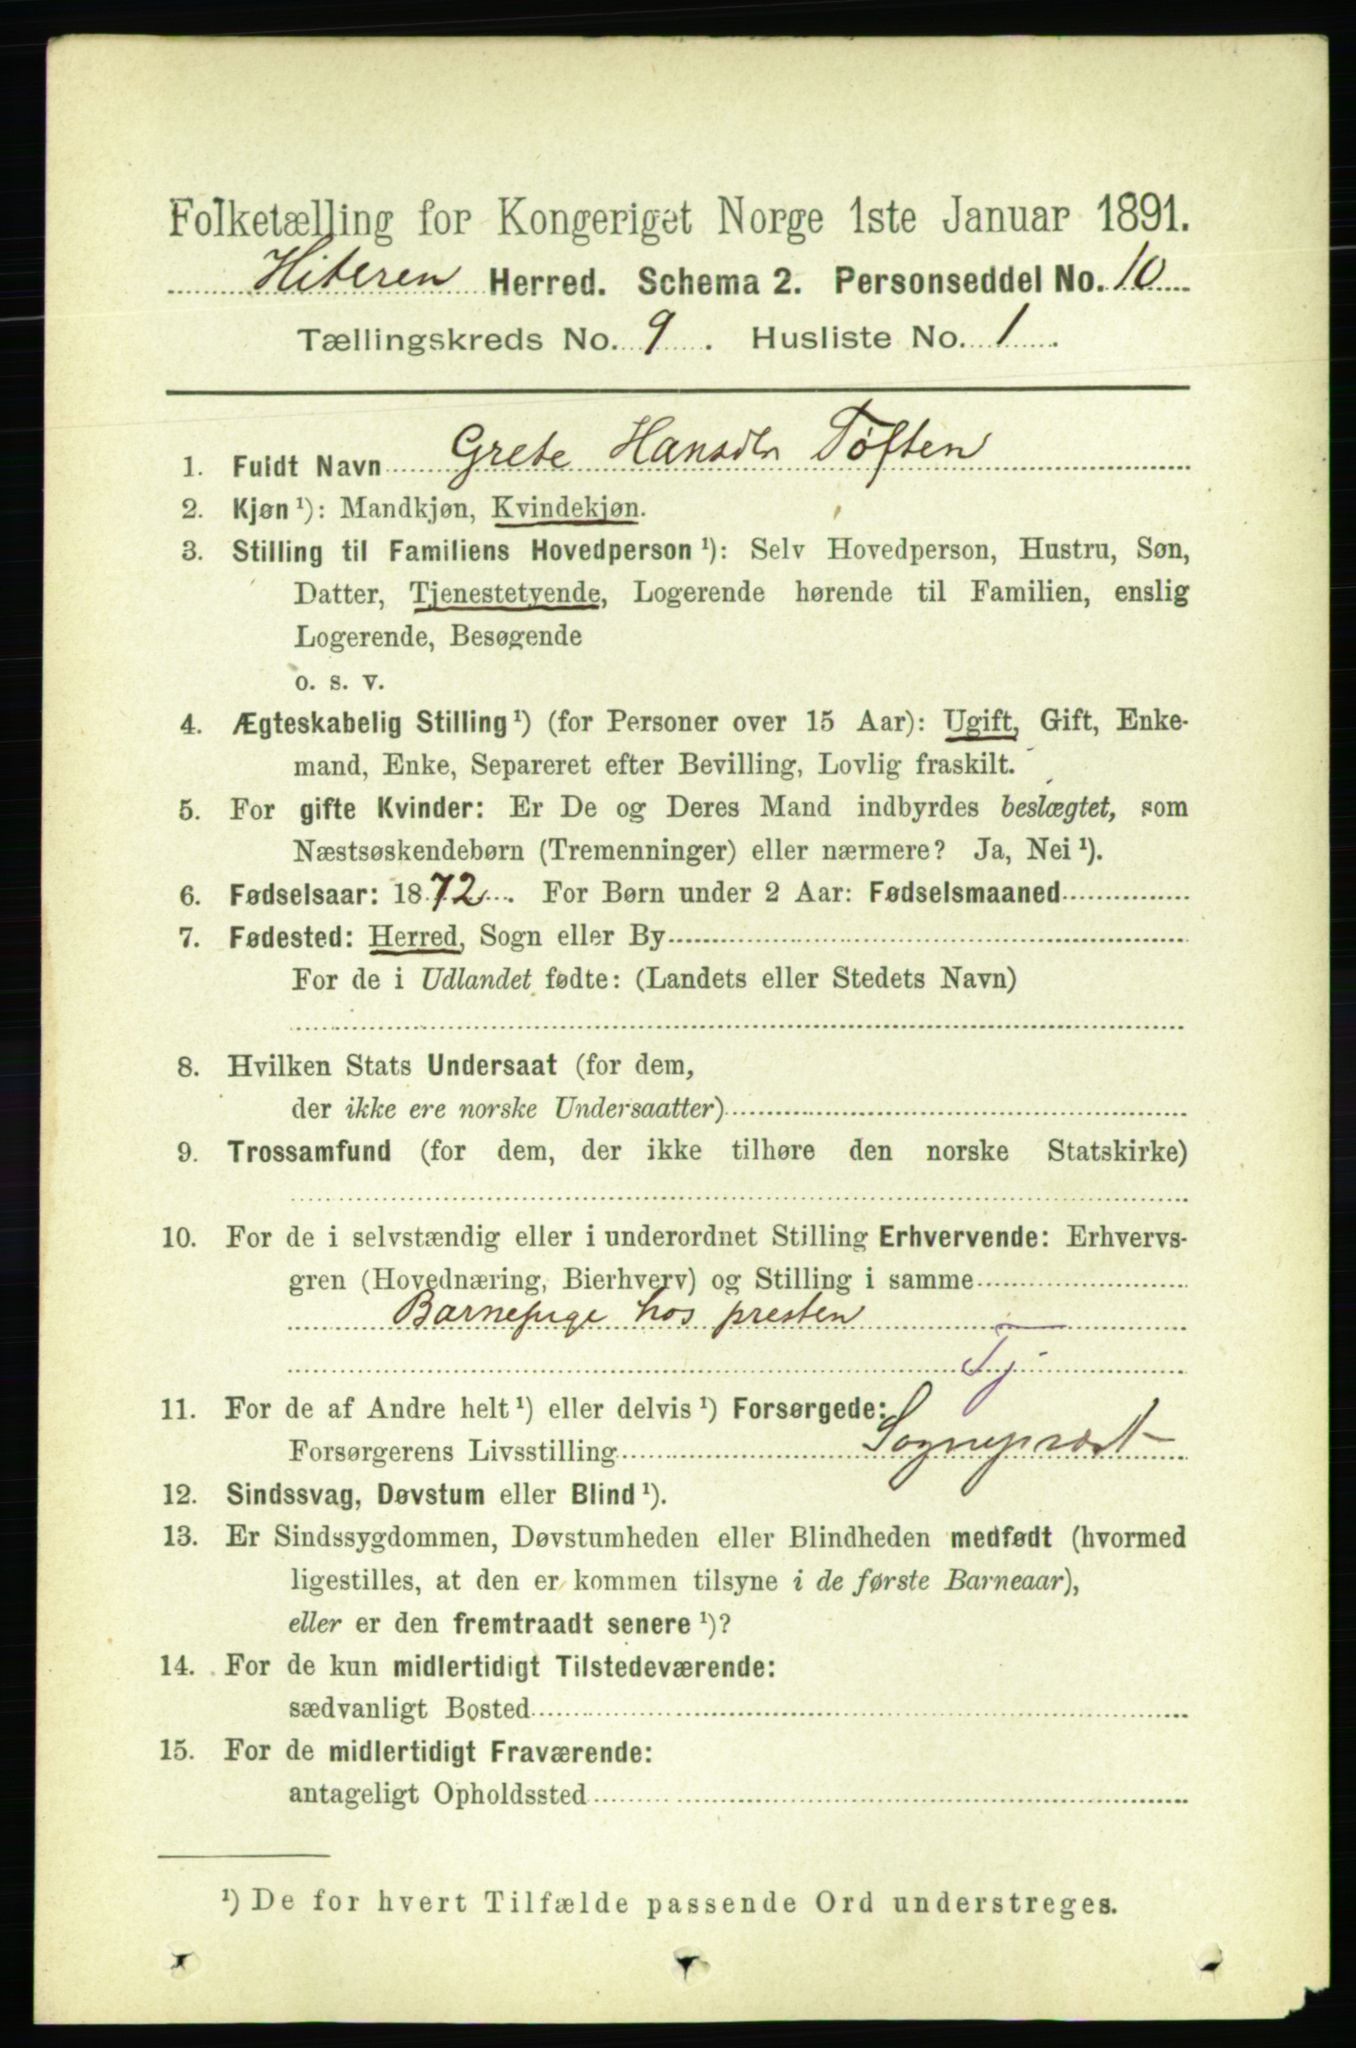 Folketælling for Kongeriget Norge 1ste Januar 1891.
Hiteren Herred. Schema 2. Personseddel No. 10
Tællingskreds No. 9. Husliste No. 1.
1. Fuldt Navn Grete Hansdtr Tøften
2. Kjøn ¹): Mandkjøn, Kvindekjøn.
3. Stilling til Familiens Hovedperson ¹): Selv Hovedperson, Hustru, Søn,
Datter, Tjenestetyende, Logerende hørende til Familien, enslig
Logerende, Besøgende
o. s. v.
4. Ægteskabelig Stilling ¹) (for Personer over 15 Aar): Ugift, Gift, Enke-
mand, Enke, Separeret efter Bevilling, Lovlig fraskilt.
5. For gifte Kvinder: Er De og Deres Mand indbyrdes beslægtet, som
Næstsøskendebørn (Tremenninger) eller nærmere? Ja, Nei ¹).
6. Fødselsaar: 1872. For Børn under 2 Aar: Fødselsmaaned
7. Fødested: Herred, Sogn eller By
For de i Udlandet fødte: (Landets eller Stedets Navn)
8. Hvilken Stats Undersaat (for dem,
der ikke ere norske Undersaatter)
9. Trossamfund (for dem, der ikke tilhøre den norske Statskirke)
10. For de i selvstændig eller i underordnet Stilling Erhvervende: Erhvervs-
gren (Hovednæring, Bierhverv) og Stilling i samme
Barnepige hos presten
Tj
11. For de af Andre helt ¹) eller delvis ¹) Forsørgede:
Forsørgerens Livsstilling Sognepræst
12. Sindssvag, Døvstum eller Blind ¹).
13. Er Sindssygdommen, Døvstumheden eller Blindheden medfødt (hvormed
ligestilles, at den er kommen tilsyne i de første Barneaar),
eller er den fremtraadt senere ¹)?
14. For de kun midlertidigt Tilstedeværende:
sædvanligt Bosted
15. For de midlertidigt Fraværende:
antageligt Opholdssted
¹) De for hvert Tilfælde passende Ord understreges.